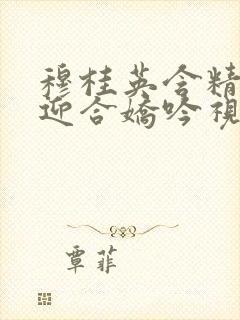 穆桂英含精
迎合嬌吟視
覃菲